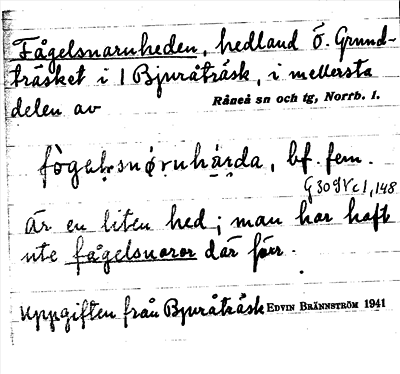 Fågelsnaruheden, hedland ö. Grund-
träsket i 1 Bjuråträsk, i mellersta
delen av
Råneå sn och tg, Norrb. l.
fògəḷsnǫruhä́rda, bf. fem.
G 309 Vc 1, 148
Är en liten hed; man har haft
ute fågelsnaror där förr.
Uppgiften från Bjuråträsk EDVIN BRÄNNSTRÖM 1941